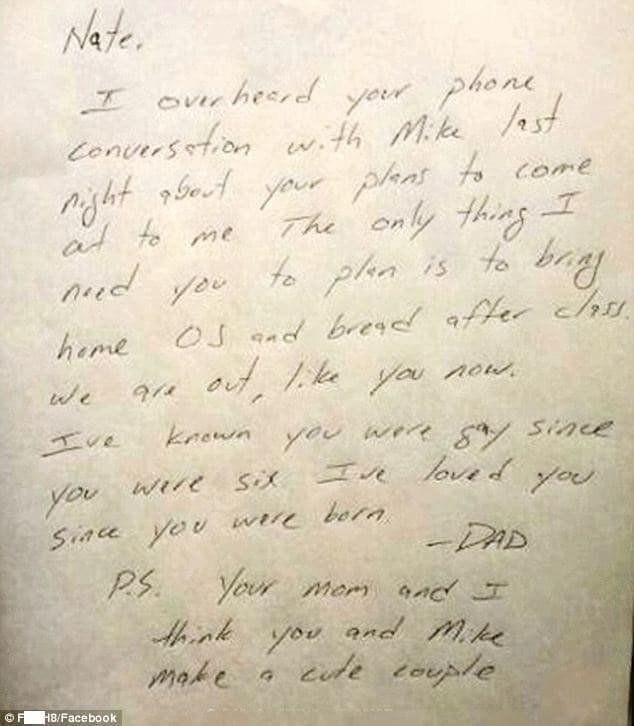 Nate,
I overheard your phone
conversation with Mike last
night about your plans to come
out to me The only thing I
need you to plan is to bring
home OJ and bread after class.
We are out, like you now.
I've known you were gay since
you were six I've loved you
since you were born
-DAD
P.S. Your mom and I
think you and Mike
make a cute couple
© F H8/Facebook